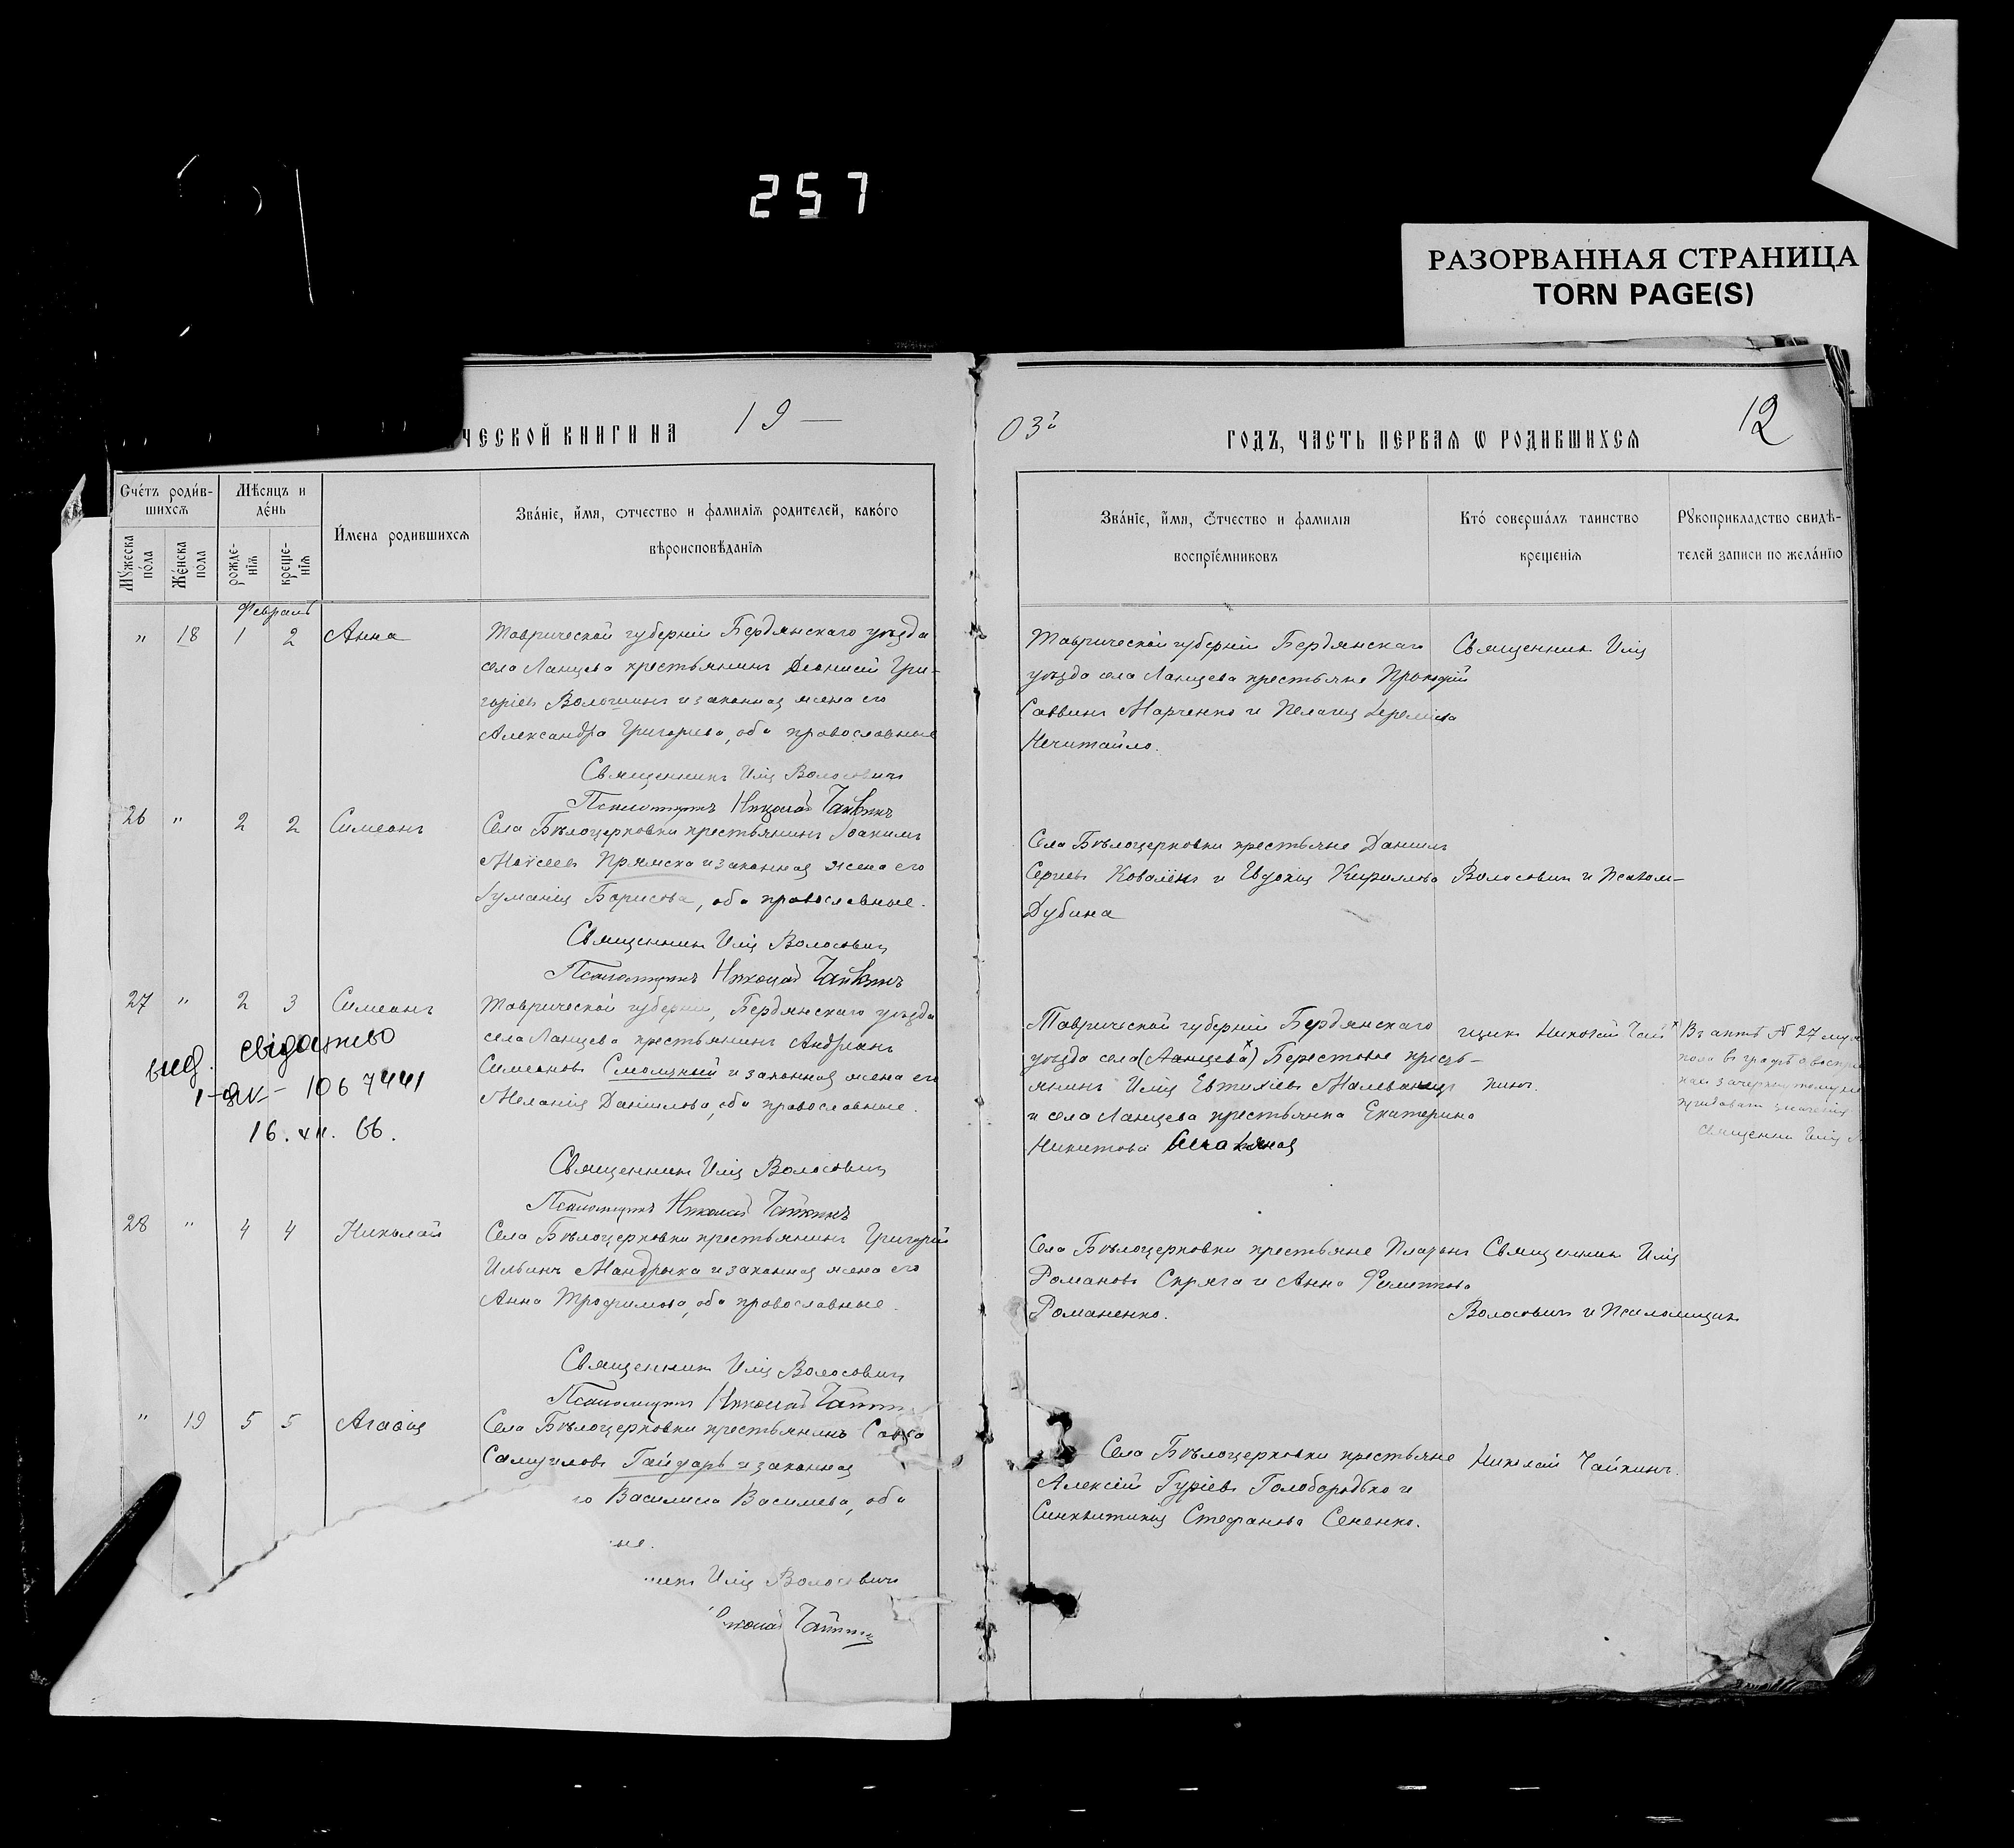 257
РАЗОРВАННАЯ СТРАНИЦА
TORN PAGE(S)
ЧЕСКОЙ КНИГИ НА 19
03й ГОДЪ, ЧАСТЬ ПЕРВАЯ Ѡ РОДИВШИХСЯ
12
Счетъ родившихся
Мужеска пола
Женска пола
Мѣсяцъ и день
рожденія
крещенія
Имена родившихся
Званіе, имя, отчество и фамилія родителей, какого
вѣроисповѣданія
Званіе, имя, отчество и фамилія
воспріемниковъ
Кто совершалъ таинство
крещенія
Рукоприкладство свидѣ-
телей записи по желанію
Февраль
" 18 1 2 Анна
Таврической губерніи Бердянскаго уѣзда
села Ланцева крестьянинъ Діонисій Гри-
горіевъ Волошинъ и законная жена его
Александра Григорьева, оба православные
Священникъ Илія Волосовичъ
Псаломщикъ Николай Чайкинъ
Таврической губерніи Бердянскаго
уѣзда села Ланцева крестьяне Прокофій
Саввинъ Марченко и Пелагія
Нечитайло.
Священникъ Илія
26 " 2 2 Симеонъ
Села Бѣлоцерковки крестьянинъ Іоакимъ
Моисеевъ и законная жена его
Борисова, оба православные.
Священникъ Илія Волосовичъ
Псаломщикъ Николай Чайкинъ
Села Бѣлоцерковки крестьяне Даніилъ
Сергіевъ и Евдокія Кириллова
Дубина
Волосовичъ и Псалом-
27 " 2 3 Симеонъ
вид. свідоцтво
1067441
16. XII. 66.
Таврической губерніи, Бердянскаго уѣзда
села Ланцева крестьянинъ Андріанъ
Симеоновъ Смолцкий и законная жена его
Меланія Даніилова, оба православные.
Священникъ Илія Волосовичъ
Псаломщикъ Николай Чайкинъ
Таврической губерніи Бердянскаго
уѣзда села (Ланцева) Берестовое кресть-
янинъ Илія Евтихіевъ
и села Ланцева крестьянка Екатерина
Никитова
щикъ Николай Чай-
кинъ.
Въ актѣ № 27
пола въ графѣ о
Священникъ Илія
28 " 4 4 Николай
Села Бѣлоцерковки крестьянинъ Григорій
Ильинъ Мандрыка и законная жена его
Анна Трофимова, оба православные.
Священникъ Илія Волосовичъ
Псаломщикъ Николай
Села Бѣлоцерковки крестьяне Платонъ
Романовъ Скряга и Анна
Романенко.
Священникъ Илія
Волосовичъ и Псаломщикъ
" 19 5 5 Агаѳія
Села Бѣлоцерковки крестьянинъ Савва
Самуиловъ Гайдаръ и законная
го Василиса Василіева, оба
ные.
никъ Илія Волосовичъ
Села Бѣлоцерковки крестьяне
Алексій Гуріевъ Голобородько и
Синклитикія Стефанова Сененко.
Николай Чайкинъ.